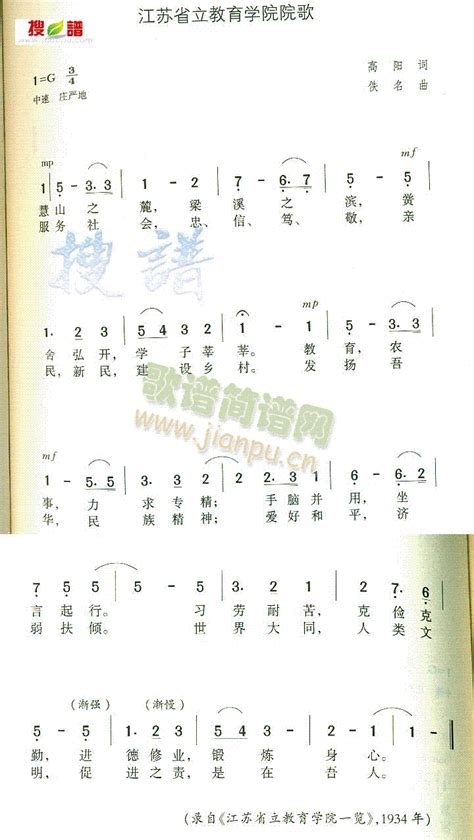 搜谱
江苏省立教育学院院歌
1=G 3/4
高阳 词
中速 庄严地
佚名 曲
mp mf
1 5 - 3. 3 1 - 2 7 5 - 6. 7 5 - 5
慧山之麓，梁溪之滨，黉
服务社会，忠、信、笃、敬，亲
mp
1. 2 3 5 4 3 1. 2 9 2 - 1 5 - 3. 3
舍弘开，学子莘莘。教育，农
民，新民，建设乡村。发扬吾
搜谱
歌谱简谱网
www.jianpu.cn
mf
1 - 5. 5 3 - 2 1 2 - 5 4. 3 2 6. 2
事，力求专精；手脑并用，坐
华，民族精神；爱好和平，济
7 5 5 5 - 5 3. 2 1 2 7. 6
言起行。习劳耐苦，克俭克
弱扶倾。世界大同，人类文
(渐强) (渐慢)
5 - 5 1. 2 3 5 4 3 3. 2 1 - -
勤，进德修业，锻炼身心。
明，促进之责，是在吾人。
(录自《江苏省立教育学院一览》，1934年)